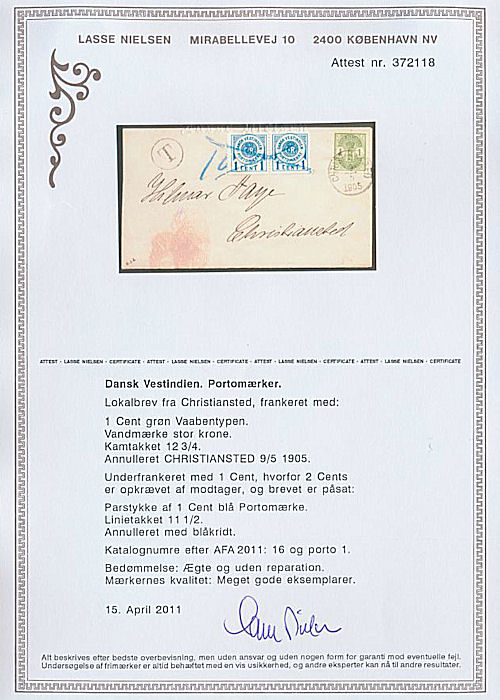 LASSE NIELSEN MIRABELLEVEJ 10 2400 KØBENHAVN NV
Attest nr. 372118
T
1 CENT 1 1 CENT 1
1 1
1905
Hilmar
Christiansted
ATTEST - LASSE NIELSEN - CERTIFICATE - ATTEST - LASSE NIELSEN - CERTIFICATE - ATTEST - LASSE NIELSEN - CERTIFICATE - ATTEST - LASSE NIELSEN - CERTIFICATE
Dansk Vestindien. Portomærker.
Lokalbrev fra Christiansted, frankeret med:
1 Cent grøn Vaabentypen.
Vandmærke stor krone.
Kamtakket 12 3/4.
Annulleret CHRISTIANSTED 9/5 1905.
Underfrankeret med 1 Cent, hvorfor 2 Cents
er opkrævet af modtager, og brevet er påsat:
Parstykke af 1 Cent blå Portomærke.
Linietakket 11 1/2.
Annulleret med blåkridt.
Katalognumre efter AFA 2011: 16 og porto 1.
Bedømmelse: Ægte og uden reparation.
Mærkernes kvalitet: Meget gode eksemplarer.
15. April 2011
Alt beskrives efter bedste overbevisning, men uden ansvar og uden nogen form for garanti mod eventuelle fejl.
Undersøgelse af frimærker er altid behæftet med en vis usikkerhed, og andre eksperter kan nå til andre resultater.